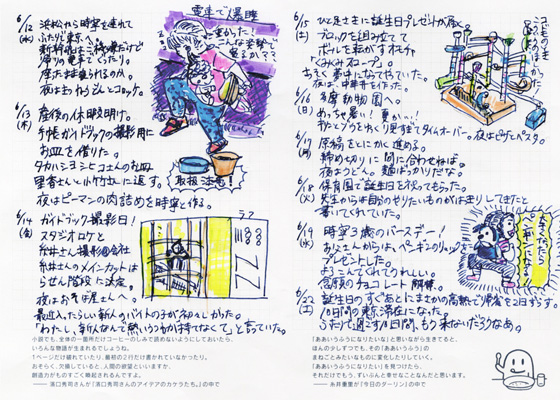 6/12
(水)
浜松から時寧を連れて
ふたりで東京へ。
夜はまつわうんとコロッケ。
電車で爆睡
重かった!
こんな姿勢で
寝るか??
6/13
(木)
産後の休暇明け。
手帳ガイドブックの撮影用に
お皿を借りた。
タカハシヨシヒコさんのお皿
里香さんと小竹さんに返す。
取扱注意!
夜はピーマンの肉詰めを時寧と作る。
6/14
(金)
ガイドブック撮影日!
スタジオロケと
糸井さん撮影@会社
糸井さんのメインカットは
らせん階段に決定。
夜はおそば屋さんへ。
最近入ったらしい新人のバイトの子が初々しかった。
「わたし、新人なんで熱いうつわが持てなくて」と言っていた。
小説でも、全体の一箇所だけコーヒーのしみで読めないようにしておいたら、
いろんな物語が生まれるでしょうね。
1ページだけ破れていたり、最初の2行だけ書かれていなかったり。
おそらく、欠損していると、人間の欲望といいますか、
創造力がものすごく喚起されるんですよ。
—— 濱口秀司さんが「濱口秀司さんのアイデアのカケラたち。」の中で
6/15
(土)
ひと足さきに誕生日プレゼントが届く。
ブロックを組み立てて
ボールを転がすオモチャ
「くみくみスロープ」。
さっそく夢中になってやっていた。
夜は、中華丼を作った。
6/16
(日)
多摩動物園へ。
めっちゃ暑い! 夏かい!
タイムオーバー。夜はピザとパスタ。
6/17
(月)
原稿をとにかく進める。
締め切りに間に合わせねば。
夜はうどん。麺ばっかりだな。
6/18
(火)
保育園で誕生日を祝ってもらった。
先生からは自分のやりたいものがはっきりしてきたと
書いてくれていた。
6/19
(水)
時寧3歳のバースデー!
おじさんからは、ペンギンのリュックを
プレゼントした。
よろこんでくれてうれしい。
念願のチョコレート解禁。
6/22
(土)
誕生日のすぐあとにまさかの高熱で帰省を2日ずらす。
10日間の東京滞在になった。
ふたりで過ごす10日間、もう来ないだろうなあ。
「ああいうふうになりたいな」と思いながら生きてると、
ほんの少しずつでも、その「ああいうふう」の
まねごとみたいなものに変化したりしていく。
「ああいうふうになりたい」を見つけたら、
それだけでもう、ずいぶんと幸せなことなんだと思います。
—— 糸井重里が「今日のダーリン」の中で